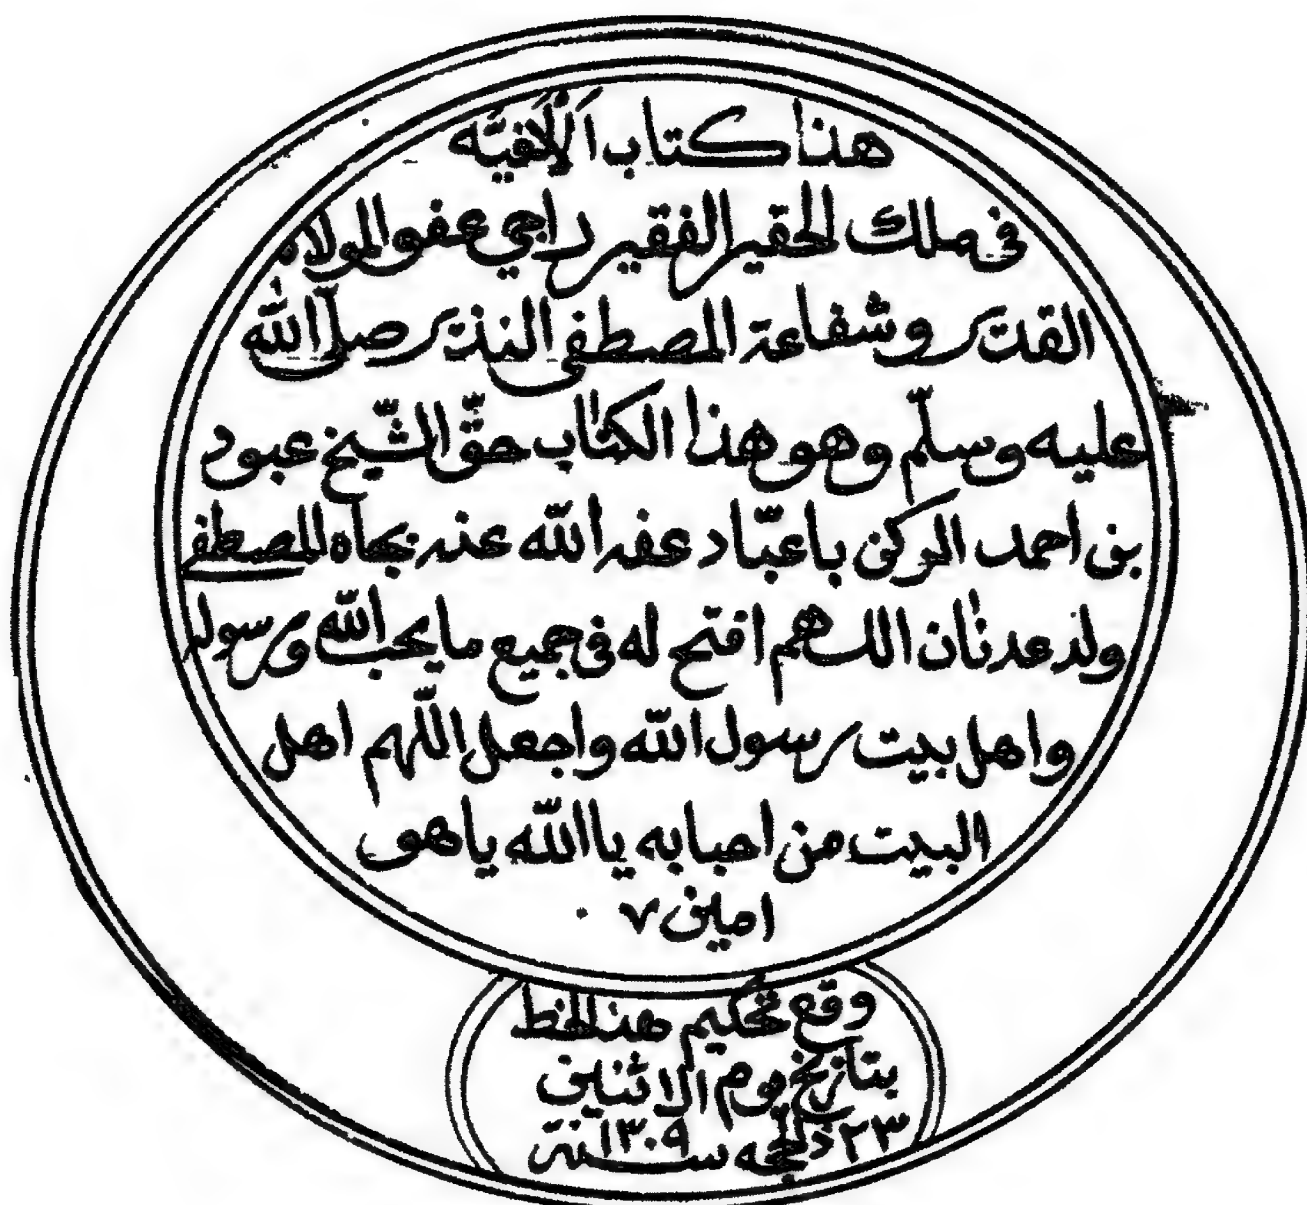 هذا كتاب اَلْاَلفيَّه
في ملك الحقير الفقير راجي عفو المولاه
القدير وشفاعة المصطفى النذير صلّى الله
عليه وسلّم وهو هذا الكتاب حقّ الشّيخ عبود
بن احمد الوكن باعبّاد عفه الله عنه بجاه المصطفى
ولد عدنان اللهم افتح له في جميع ما يحب الله ورسوله
واهل بيت رسول الله واجعل اللّهم اهل
البيت من احبابه يا الله يا هو
امين ٧
وقع تحكيم هذا الخط
بتاريخ يوم الاثنين
٢٣ ذلحجه سنة ١٣٠٩